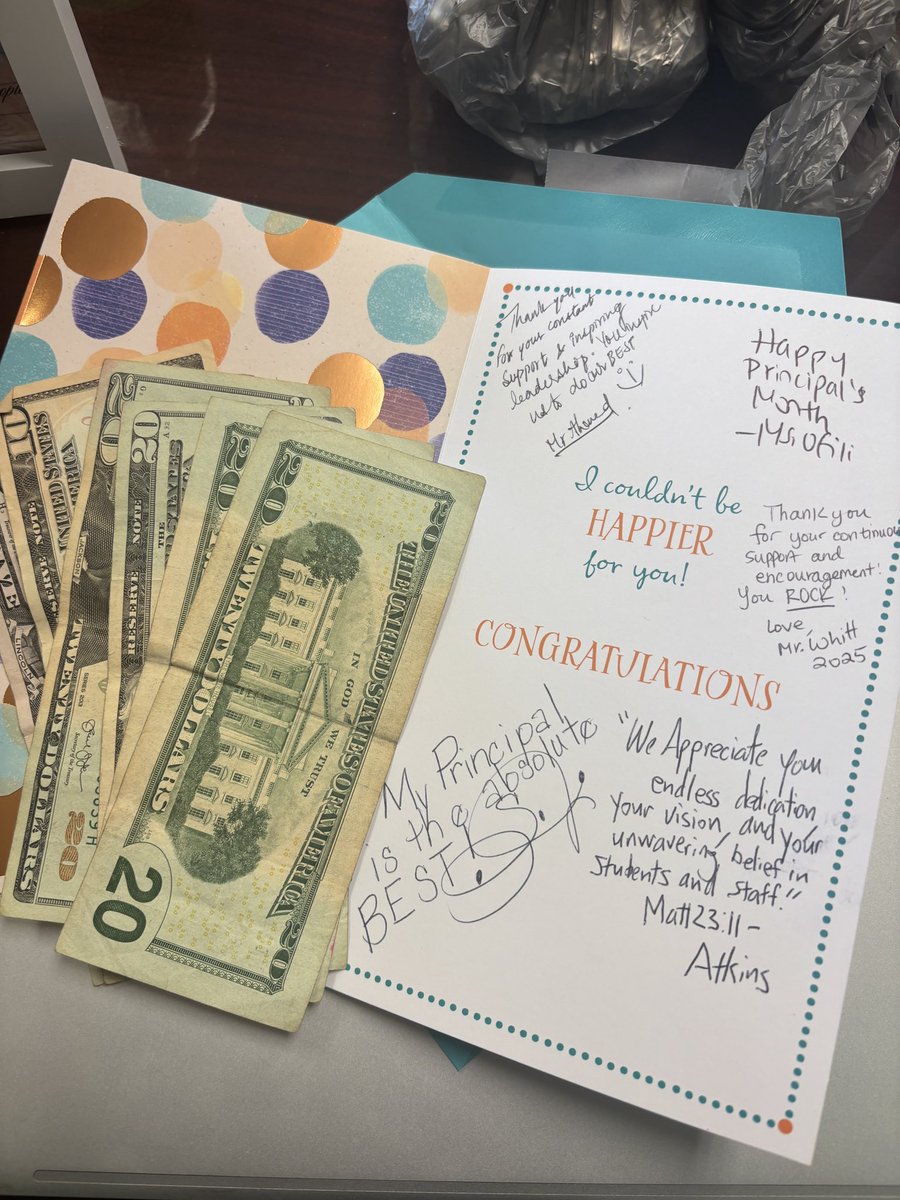 Thank you
for your constant
support & inspiring
leadership. You inspire
us to do our BEST
Happy
Principal's
Month
I couldn't be
HAPPIER
for you!
Thank you
for your continuous
support and
encouragement!
You ROCK!
Love,
Mr. Whitt
2025
CONGRATULATIONS
My Principal
is the absolute
BEST
"We Appreciate your
endless dedication,
your vision, and your
unwavering belief in
students and staff."
Matt 23:11 -
Atkins
THE UNITED STATES OF AMERICA
IN GOD WE TRUST
TWENTY DOLLARS
20
20
20
TWENTY DOLLARS
20
RESERVE NOTE
THE
STATES
20
10
UNITED STATES
LINCOLN
JACKSON